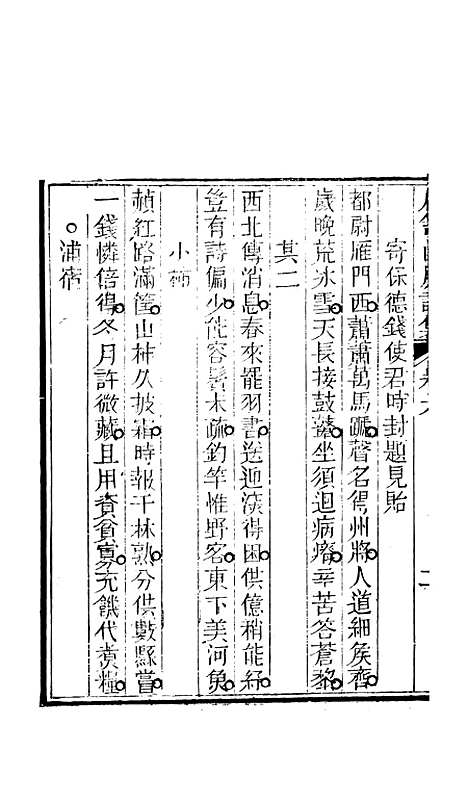 寄保德錢使君時封題見貽
都尉雁門西蕭蕭萬馬蹏聲名得州將人道細矦齊
歲晚荒冰雪天長接鼓鼙坐須迴病瘠辛苦答蒼黎
其二
西北傳消息春來罷羽書送迎湥得困供億稍能紓
豈有詩偏少從容鬢未疏釣竿惟野客東下美河魚
小
赬紅路滿筐山柿久披霜時報千林熟分供數縣嘗
一錢憐倍得冬月許微藏且用資貧寡充饑代責糧
浦宿